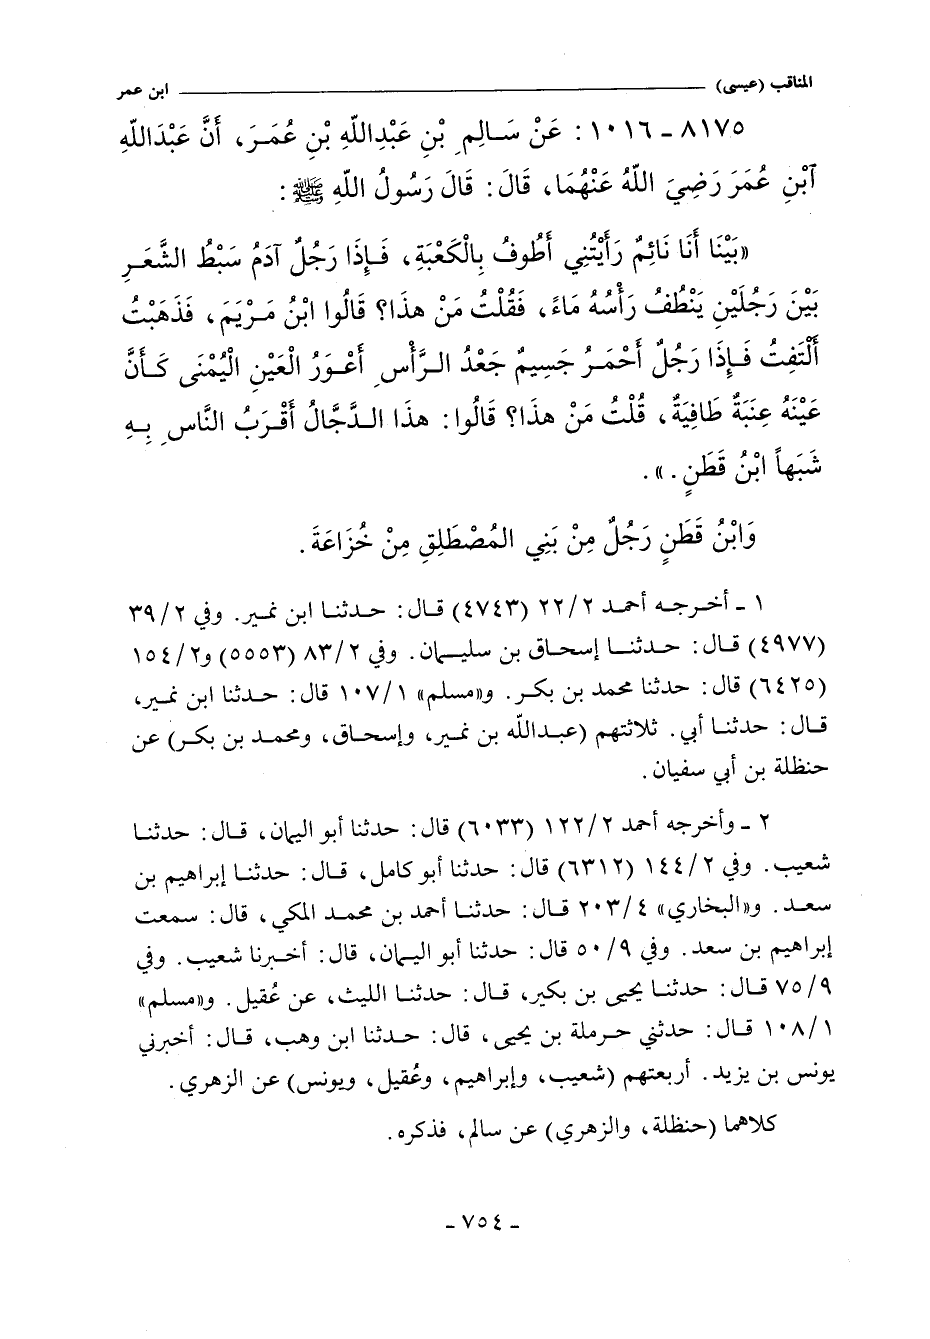 المناقب (عيسى) ابن عمر
٨١٧٥ - ١٠١٦ : عَنْ سَالِمِ بْنِ عَبْدِاللّٰهِ بْنِ عُمَرَ، أَنَّ عَبْدَاللّٰهِ
آبْنِ عُمَرَ رَضِيَ اللّٰهُ عَنْهُمَا، قَالَ: قَالَ رَسُولُ اللّٰهِ ﷺ :
«بَيْنَا أَنَا نَائِمٌ رَأَيْتُنِي أَطُوفُ بِالْكَعْبَةِ، فَإِذَا رَجُلٌ آدَمُ سَبْطُ الشَّعَرِ
بَيْنَ رَجُلَيْنِ يَنْطُفُ رَأْسُهُ مَاءً، فَقُلْتُ مَنْ هذَا؟ قَالُوا ابْنُ مَرْيَمَ، فَذَهَبْتُ
أَلْتَفِتُ فَإِذَا رَجُلٌ أَحْمَرُ جَسِيمٌ جَعْدُ الرَّأْسِ أَعْوَرُ الْعَيْنِ الْيُمْنَى كَأَنَّ
عَيْنَهُ عِنَبَةٌ طَافِيَةٌ، قُلْتُ مَنْ هذَا؟ قَالُوا: هذَا الدَّجَّالُ أَقْرَبُ النَّاسِ بِهِ
شَبَهاً ابْنُ قَطَنٍ.».
وَابْنُ قَطَنٍ رَجُلٌ مِنْ بَنِي المُصْطَلِقِ مِنْ خُزَاعَةَ.
١ - أخرجه أحمد ٢/ ٢٢ (٤٧٤٣) قال: حدثنا ابن نمير. وفي ٢/ ٣٩
(٤٩٧٧) قال: حدثنا إسحاق بن سليمان. وفي ٢/ ٨٣ (٥٥٥٣) و٢/ ١٥٤
(٦٤٢٥) قال: حدثنا محمد بن بكر. و«مسلم» ١/ ١٠٧ قال: حدثنا ابن نمير،
قال: حدثنا أبي. ثلاثتهم (عبدالله بن نمير، وإسحاق، ومحمد بن بكر) عن
حنظلة بن أبي سفيان.
٢ - وأخرجه أحمد ٢/ ١٢٢ (٦٠٣٣) قال: حدثنا أبو اليمان، قال: حدثنا
شعيب. وفي ٢/ ١٤٤ (٦٣١٢) قال: حدثنا أبو كامل، قال: حدثنا إبراهيم بن
سعد. و«البخاري» ٤/ ٢٠٣ قال: حدثنا أحمد بن محمد المكي، قال: سمعت
إبراهيم بن سعد. وفي ٩/ ٥٠ قال: حدثنا أبو اليمان، قال: أخبرنا شعيب. وفي
٩/ ٧٥ قال: حدثنا يحيى بن بكير، قال: حدثنا الليث، عن عُقيل. و«مسلم»
١/ ١٠٨ قال: حدثني حرملة بن يحيى، قال: حدثنا ابن وهب، قال: أخبرني
يونس بن يزيد. أربعتهم (شعيب، وإبراهيم، وعُقيل، ويونس) عن الزهري.
كلاهما (حنظلة، والزهري) عن سالم، فذكره.
- ٧٥٤ -